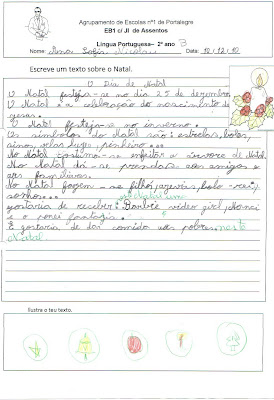 Agrupamento de Escolas nº1 de Portalegre
EB1 c/ JI de Assentos
Língua Portuguesa– 2º ano B
Nome: Ana Sofia Data: 10/12/10
Escreve um texto sobre o Natal.
O Dia de Natal
O Natal festeja-se no dia 25 de dezembro.
O Natal é a celebração do nascimento de
jesus.
O Natal festeja-se no inverno.
Os simbolos do Natal são: estrelas, bolas,
sinos, velas, luzes, pinheiro...
No Natal costuma-se enfeitar a árvore de Natal.
No Natal dá-se prendas aos amigos e
aos familiares.
No Natal fazem-se filhós, azevias, bolo-rei,
sonhos...
gostaria de receber: Barbie video girl,
e o ponei fantasia.
E gostaria de dar comida aos pobres, neste
Natal.
Ilustra o teu texto.